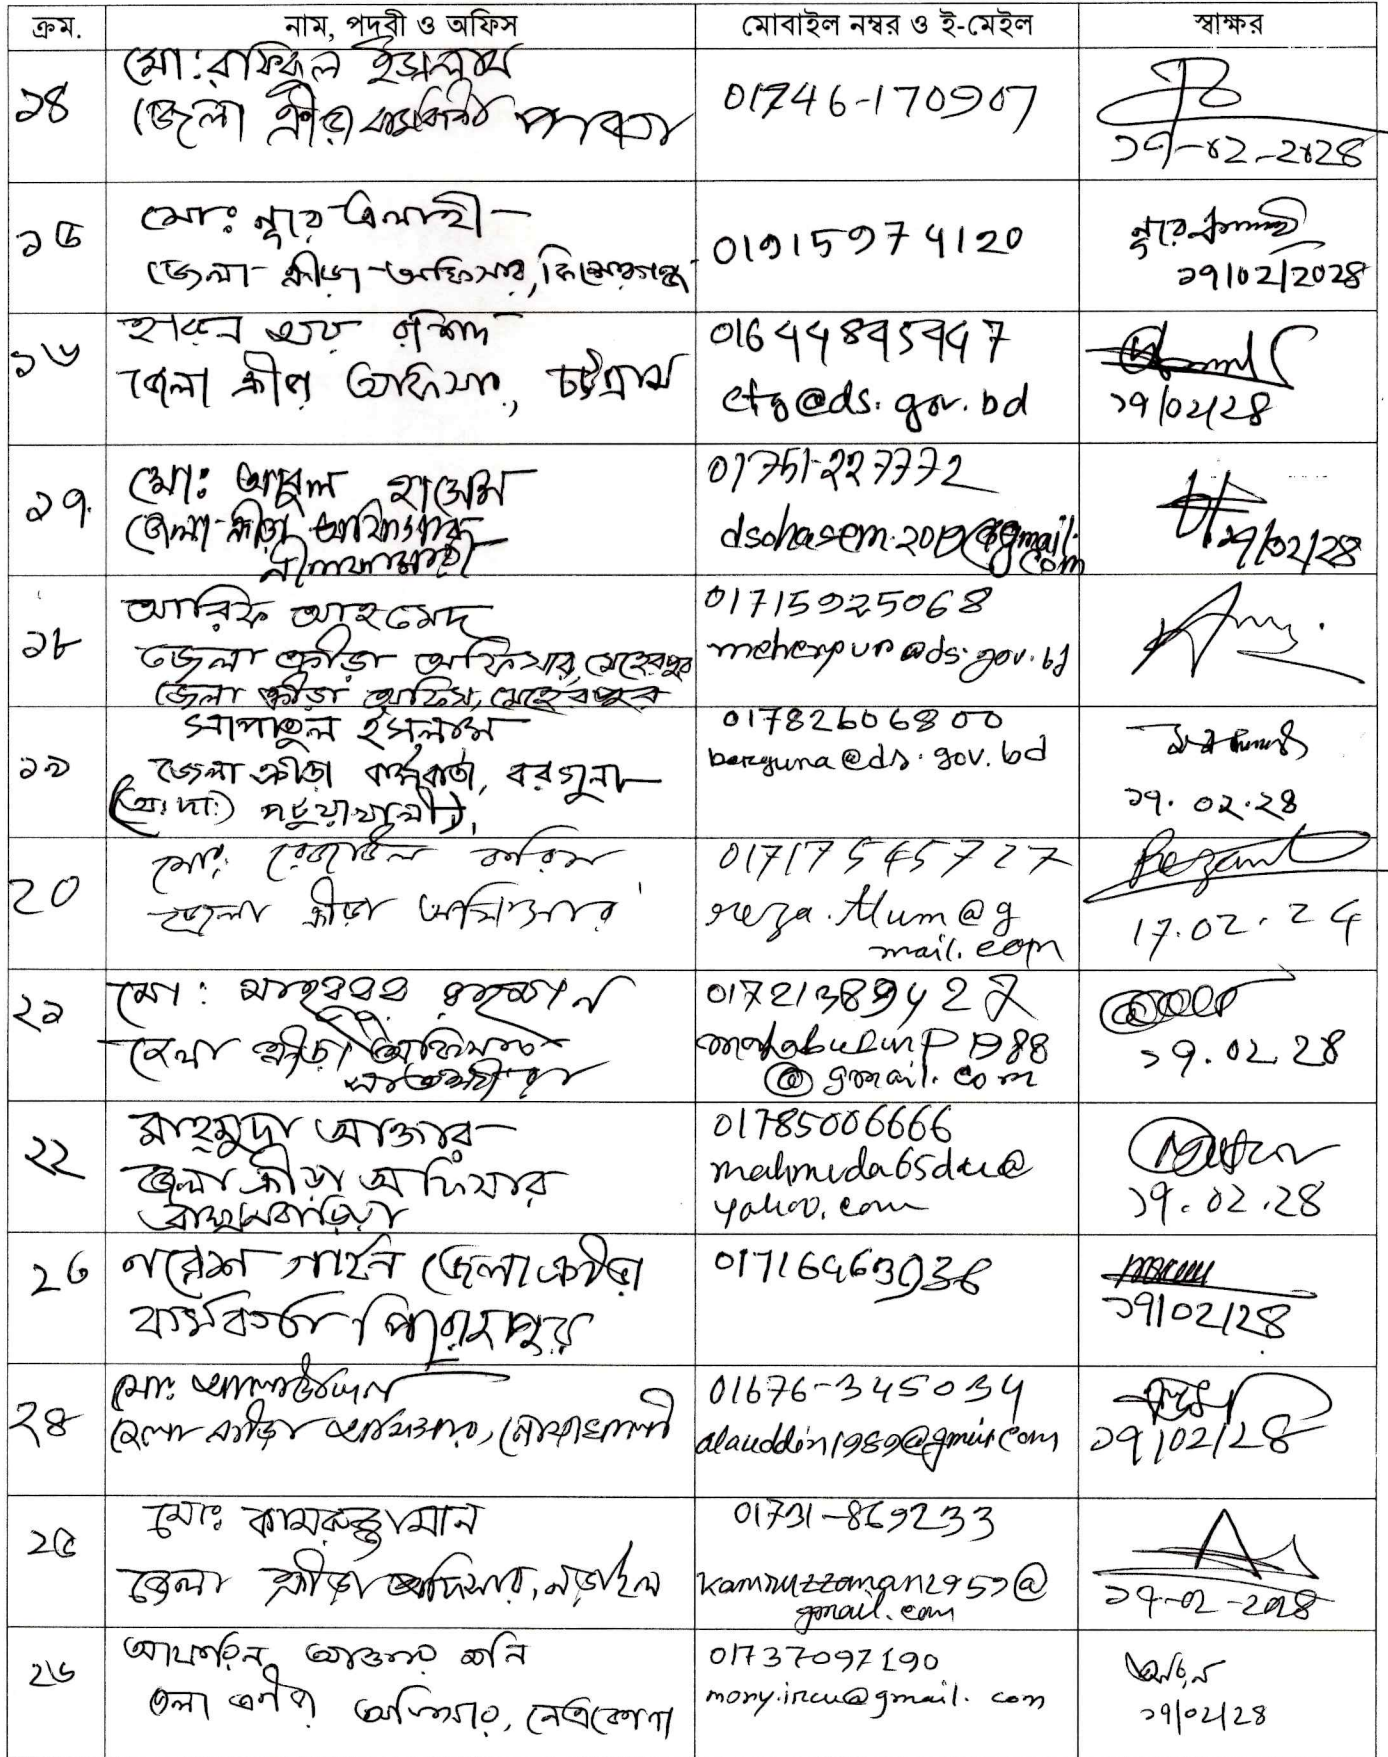 ক্রম. নাম, পদবী ও অফিস মোবাইল নম্বর ও ই-মেইল স্বাক্ষর
১৪ মো: রফিকুল ইসলাম
জেলা ক্রীড়া কর্মকর্তা পাবনা 01746-170907
১৫ মোঃ নূরে এলাহী
জেলা ক্রীড়া অফিসার, কিশোরগঞ্জ 01915974120 নূরে এলাহী
১৭/০২/২০২৪
১৬ হারুন অর রশিদ
জেলা ক্রীড়া অফিসার, চট্টগ্রাম 01644895947
ctg@ds.gov.bd ১৭/০২/২৪
১৭. মোঃ আবুল হাসেম
জেলা ক্রীড়া অফিসার
নীলফামারী 01751-227772
dsohasem.2019@gmail.
com ১৭/০২/২৪
১৮ আরিফ আহমেদ
জেলা ক্রীড়া অফিসার, মেহেরপুর
জেলা ক্রীড়া অফিস, মেহেরপুর 01715925068
meherpur@ds.gov.bd
১৯ ইসলাম
জেলা ক্রীড়া কর্মকর্তা, বরগুনা
(অঃ দাঃ) পটুয়াখালী। 01782606800
barguna@ds.gov.bd ১৭.০২.২৪
20 মোঃ রেজাউল করিম
জেলা ক্রীড়া অফিসার 01717545727
@g
mail.com 17.02.24
২১ মো: মাহবুবুর রহমান
জেলা ক্রীড়া অফিসার
সাতক্ষীরা 01721389427
1988
@gmail.com ১৭.০২.২৪
২২ মাহমুদা আক্তার
জেলা ক্রীড়া অফিসার
ব্রাহ্মণবাড়িয়া 01785006666
mahmuda65du@
yahoo.com ১৭.০২.২৪
২৩ নরেশ গাইন জেলা ক্রীড়া
কর্মকর্তা পিরোজপুর ১৭/০২/২৪
২৪ মোঃ আলাউদ্দিন
জেলা ক্রীড়া অফিসার, নোয়াখালী 01676-345034
alauddin1989@gmail.com ১৭/০২/২৪
২৫ মোঃ কামরুজ্জামান
জেলা ক্রীড়া অফিসার, নড়াইল 01731-869233
gmail.com
২৬ আফরিন আক্তার মনি
জেলা ক্রীড়া অফিসার, নেত্রকোণা 01737097190
mony.ircu@gmail.com ১৭/০২/২৪